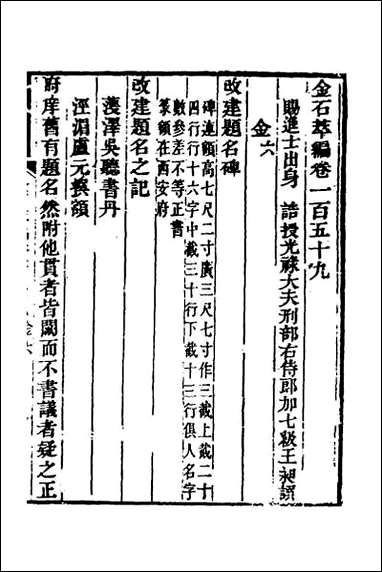 金石萃編卷一百五十九
賜進士出身 誥授光祿大夫刑部右侍郎加七級王昶譔
金六
改建題名碑
碑連額高七尺二寸廣三尺七寸作三截上截二十
四行行十六字中截三十行下截十三行俱人名字
數參差不等正書
篆額在西安府
改建題名之記
濩澤吳聽書丹
涇湄盧元譔額
府庠舊有題名然附他貫者皆闕而不書議者疑之正